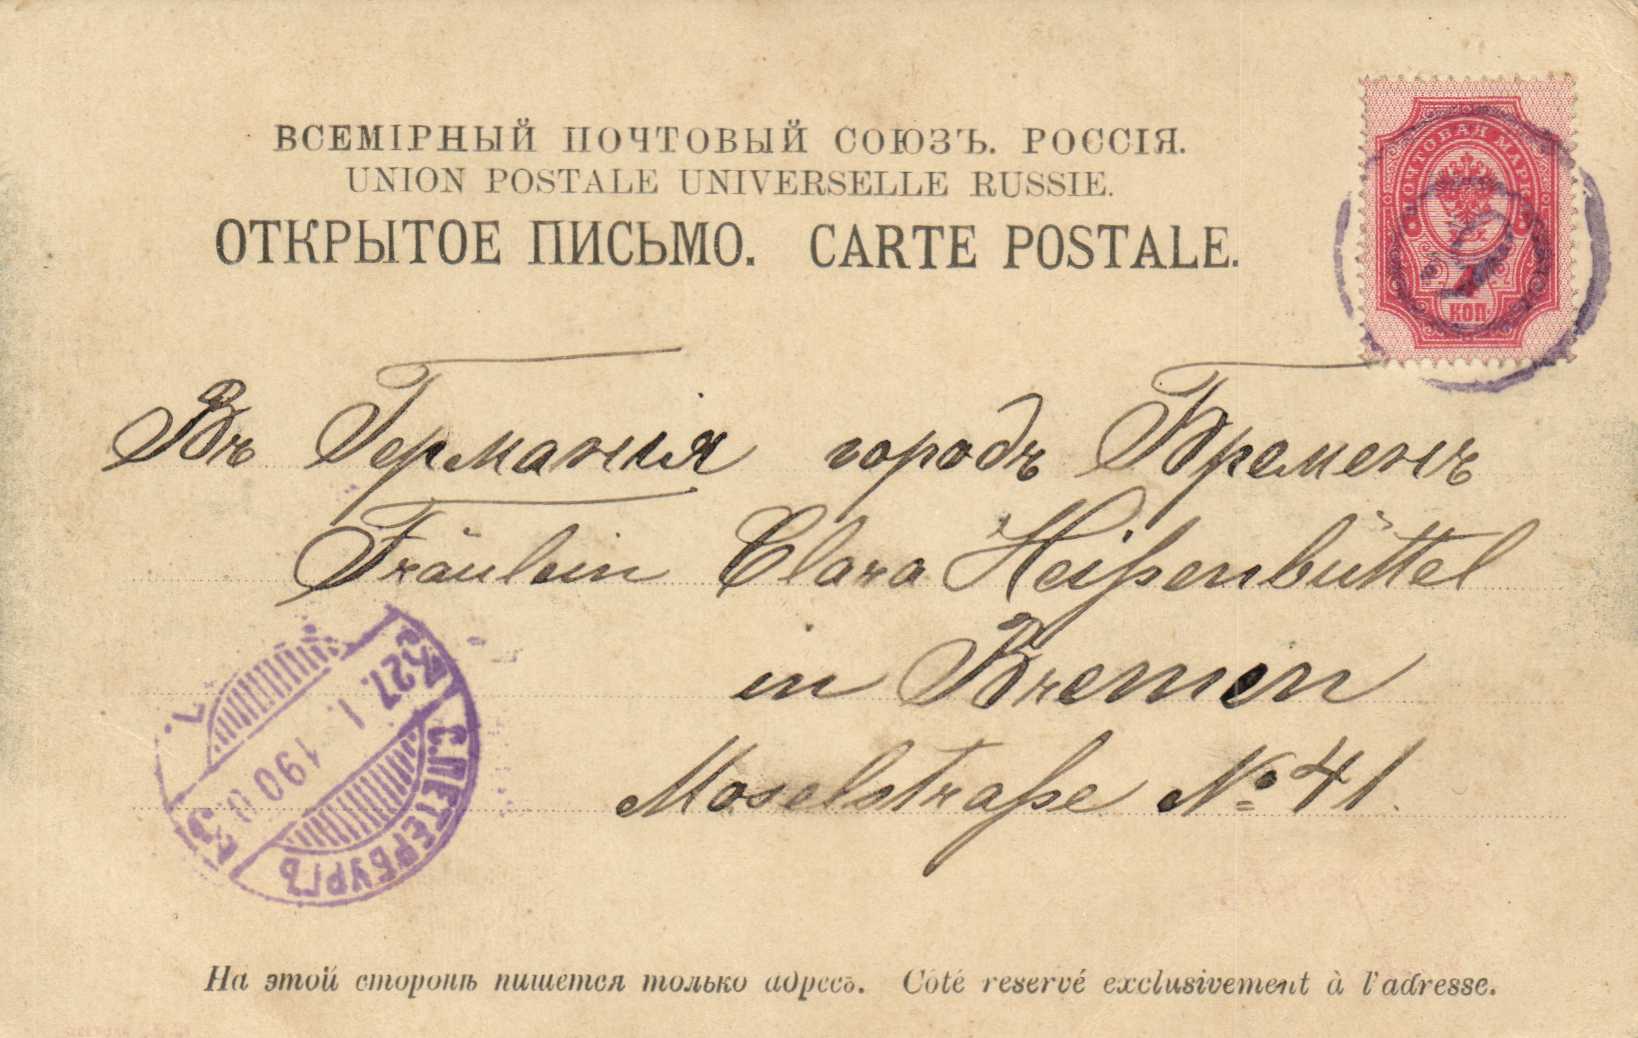 ВСЕМІРНЫЙ ПОЧТОВЫЙ СОЮЗЪ. РОССІЯ.
UNION POSTALE UNIVERSELLE RUSSIE.
ОТКРЫТОЕ ПИСЬМО. CARTE POSTALE.
ПОЧТОВАЯ МАРКА
4
КОП.
Въ Германія городъ Бременъ
Fräulein Clara Heißenbüttel
in Bremen
Moselstraße № 41.
27. 1. 1900
С.ПЕТЕРБУРГЪ
На этой сторонѣ пишется только адресъ. Côté reservé exclusivement à l'adresse.